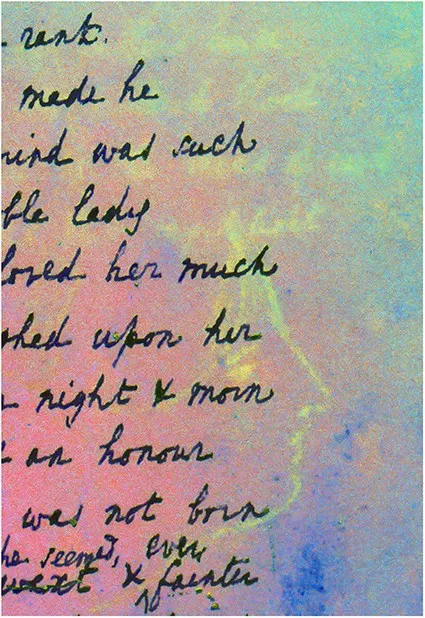 rank.
made he
mind was such
ble lady
loved her much
hed upon her
night & morn
an honour
was not born
he seemed, ever
& fainter